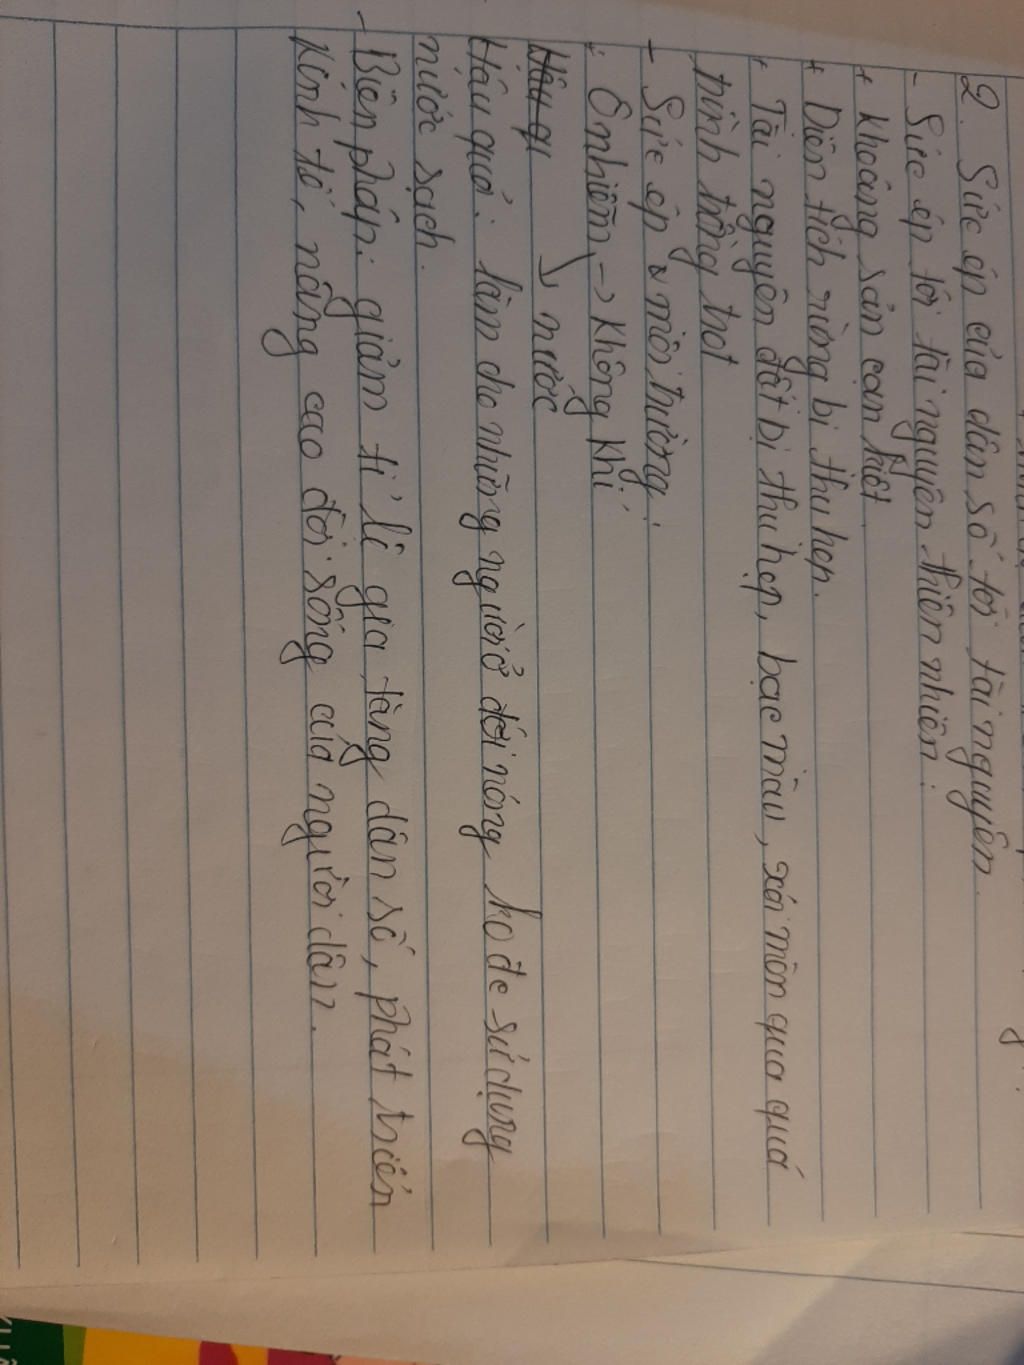 2. Sức ép của dân số tới tài nguyên.
- Sức ép tới tài nguyên thiên nhiên:
+ Khoáng sản cạn kiệt
+ Diện tích rừng bị thu hẹp.
+ Tài nguyên đất bị thu hẹp, bạc màu, xói mòn qua quá
trình trồng trọt
- Sức ép môi trường:
+ Ô nhiễm -> không khí
↘ nước
Hậu quả: làm cho những người ở đới nóng ko đc sử dụng
nước sạch.
- Biện pháp: giảm tỉ lệ gia tăng dân số, phát triển
kinh tế, nâng cao đời sống của người dân.